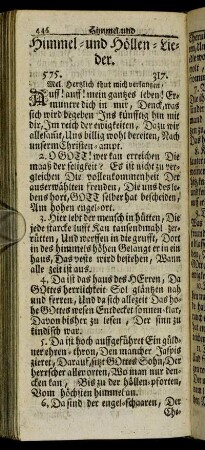 446 Himmel-und
Himmel- und Höllen-Lie-
der.
575. 317.
Mel. Hertzlich thut mich verlangen,
Auf! auf! mein gantzes leben! Er-
muntre dich in mir, Denck, was
sich wird begeben Ins künfftig hin mit
dir, Im reich der ewigkeiten, Dazu wir
allesamt, Uns billig wohl bereiten, Nach
unserm Christen-ampt.
2. O GOTT! wer kan erreichen Die
maaß der seligkeit? Es ist nicht zu ver-
gleichen Die vollkommenheit Der
auserwählten freuden, Die uns des le-
bens hort, GOTT selber hat bescheiden,
An hohen engel-ort.
3. Hier lebt der mensch in hütten, Die
jede starcke lufft Kan tausendmahl zer-
rütten, Und werffen in die grufft, Dort
in des himmels höhen Gelanget er in ein
haus, Das veste wird bestehen, Wann
alle zeit ist aus.
4. Da ist das haus des HErren, Da
GOttes herrlichkeit Sol gläntzen nah
und ferren, Und da sich allezeit Das ho-
he GOttes wesen Entdecket sonnen-klar,
Davon bisher zu lesen, Der sinn zu
kindisch war.
5. Da ist hoch auffgeführet Ein güld-
ner ehren-thron, Den mancher Jaspis
zieret, Darauf sitzt GOttes Sohn, Der
herrscher aller orten, Wo man nur den-
cken kan, Bis zu der höllen-pforten,
Vom höchsten himmel an.
6. Da sind der engel-schaaren, Der
Che-